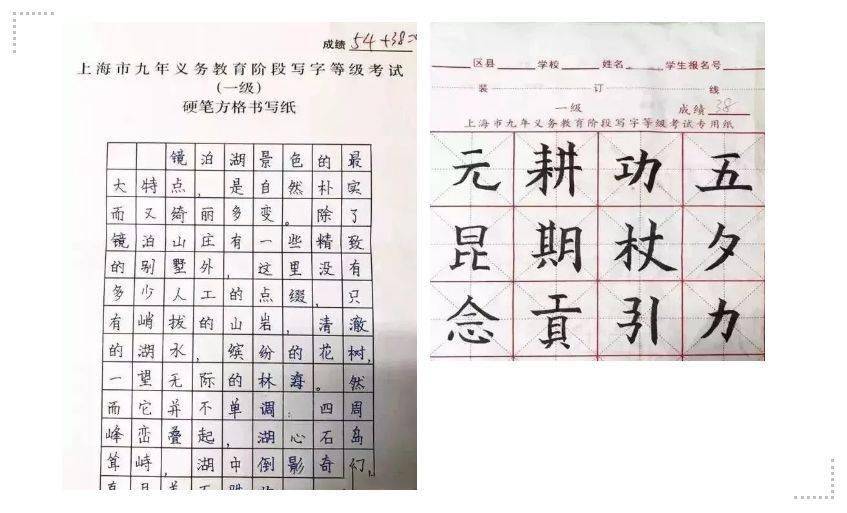 成绩 54+38=
上海市九年义务教育阶段写字等级考试
(一级)
硬笔方格书写纸
镜泊湖景色的最
大特点，是自然朴实
而又绮丽多变。除了
镜泊山庄有一些精致
的别墅外，这里没有
多少人工的点缀，只
有峭拔的山岩，清澈
的湖水，缤纷的花树，
一望无际的林海。然
而它并不单调：四周
峰峦叠起，湖心石岛
耸峙，湖中倒影奇幻，
区县 学校 姓名 学生报名号
装 订 线
一级 成绩 38
上海市九年义务教育阶段写字等级考试专用纸
元耕功五
昆期杖夕
念贡引力